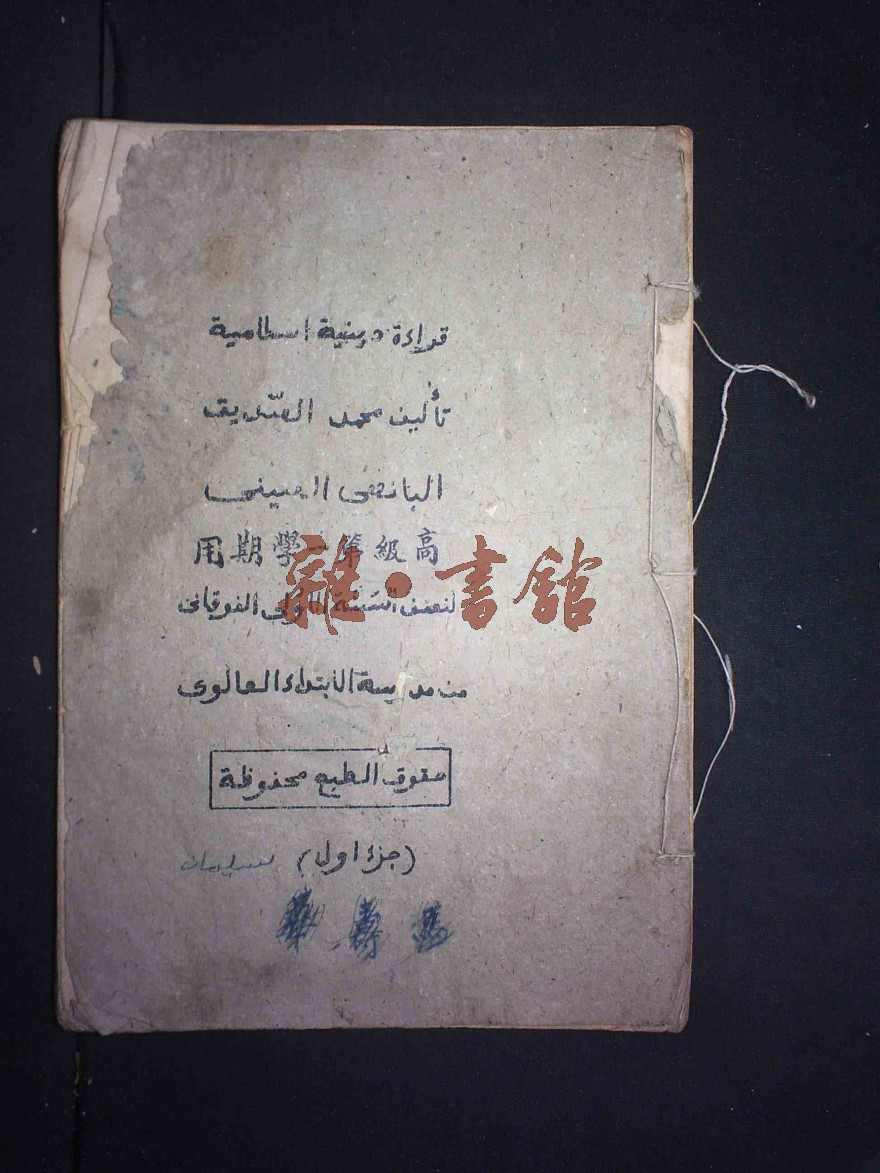 قراءة دينية اسلامية
تأليف محمد الصّديق
البانصى الصينى
高級第一學期用
雜·書館
لنصف السّنة الاولى الفوقانى
من مدرسة الابتداء العالوى
حقوق الطبع محفوظة
(جزء اول) سليمان